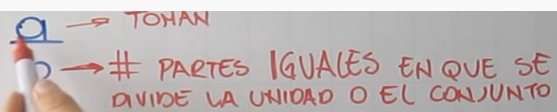 a → TOMAN
b → # PARTES IGUALES EN QUE SE
DIVIDE LA UNIDAD O EL CONJUNTO